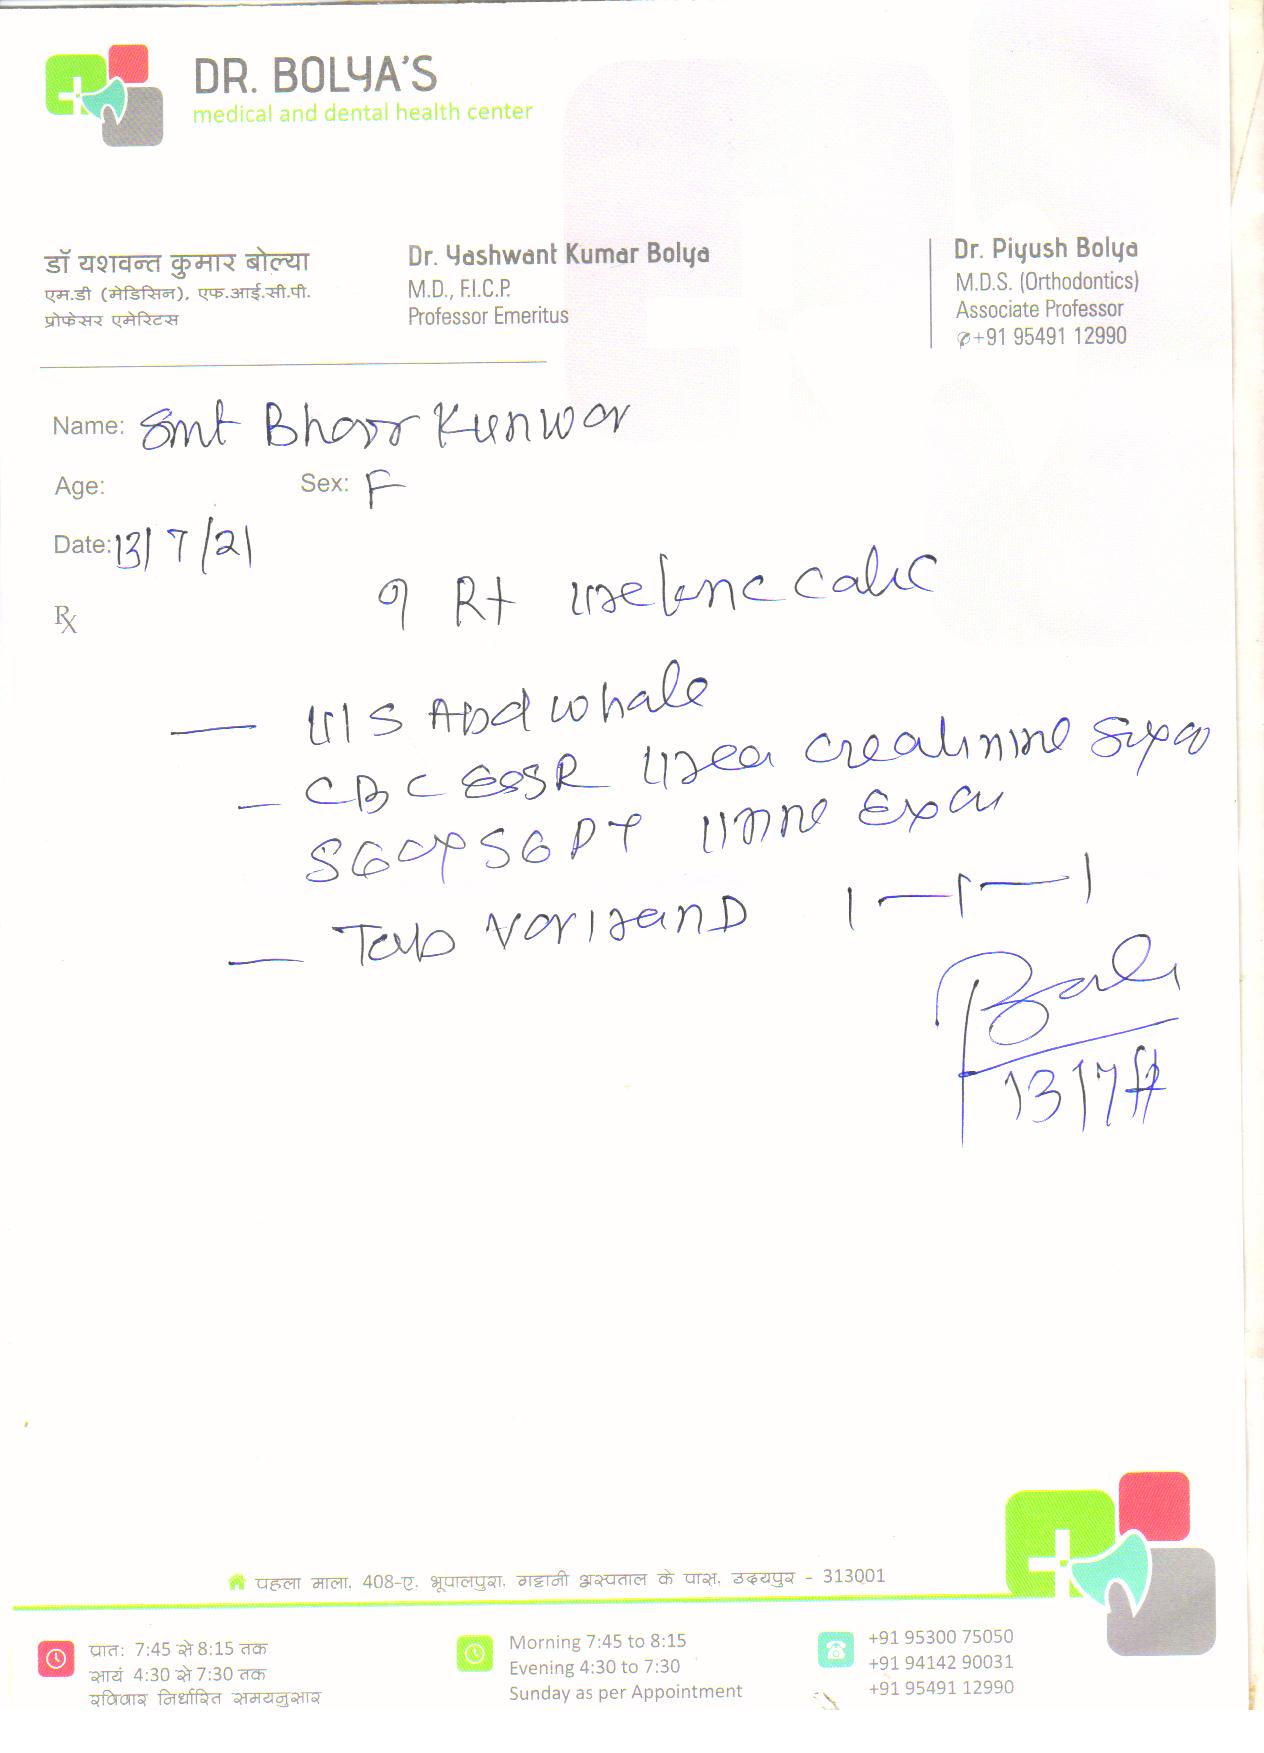 DR. BOLYA'S
medical and dental health center
डॉ यशवन्त कुमार बोल्या
एम.डी (मेडिसिन), एफ.आई.सी.पी.
प्रोफेसर एमेरिटस
Dr. Yashwant Kumar Bolya
M.D., F.I.C.P.
Professor Emeritus
Dr. Piyush Bolya
M.D.S. (Orthodontics)
Associate Professor
+91 95491 12990
Name: Smt Kunwar
Age: Sex: F
Date: 13/7/21
Rx
? Rt colic
— U/S Abd whole
— CBC ESR Urea creatinine
SGOT SGPT Urine Exam
— Tab D 1—1—1
13/7/
पहला माला, 408-ए, भूपालपुरा, गट्टानी अस्पताल के पास, उदयपुर - 313001
प्रातः 7:45 से 8:15 तक
सायं 4:30 से 7:30 तक
रविवार निर्धारित समयनुसार
Morning 7:45 to 8:15
Evening 4:30 to 7:30
Sunday as per Appointment
+91 95300 75050
+91 94142 90031
+91 95491 12990